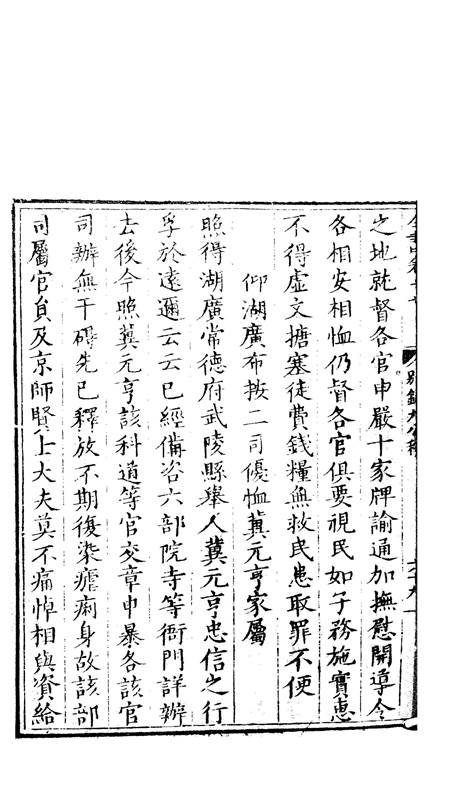 之地就督各官申嚴十家牌諭通加撫慰開導令
各相安相恤仍督各官俱要視民如子務施實惠
不得虛文搪塞徒費錢糧無救民患取罪不便
仰湖廣布按二司優恤冀元亨家屬
照得湖廣常德府武陵縣舉人冀元亨忠信之行
孚於遠邇云云已經備咨六部院寺等衙門詳辦
去後今照冀元亨該科道等官交章申暴各該官
司辦無干碍先已釋放不期復染瘧痢身故該部
司屬官員及京師賢士大夫莫不痛悼相與資給